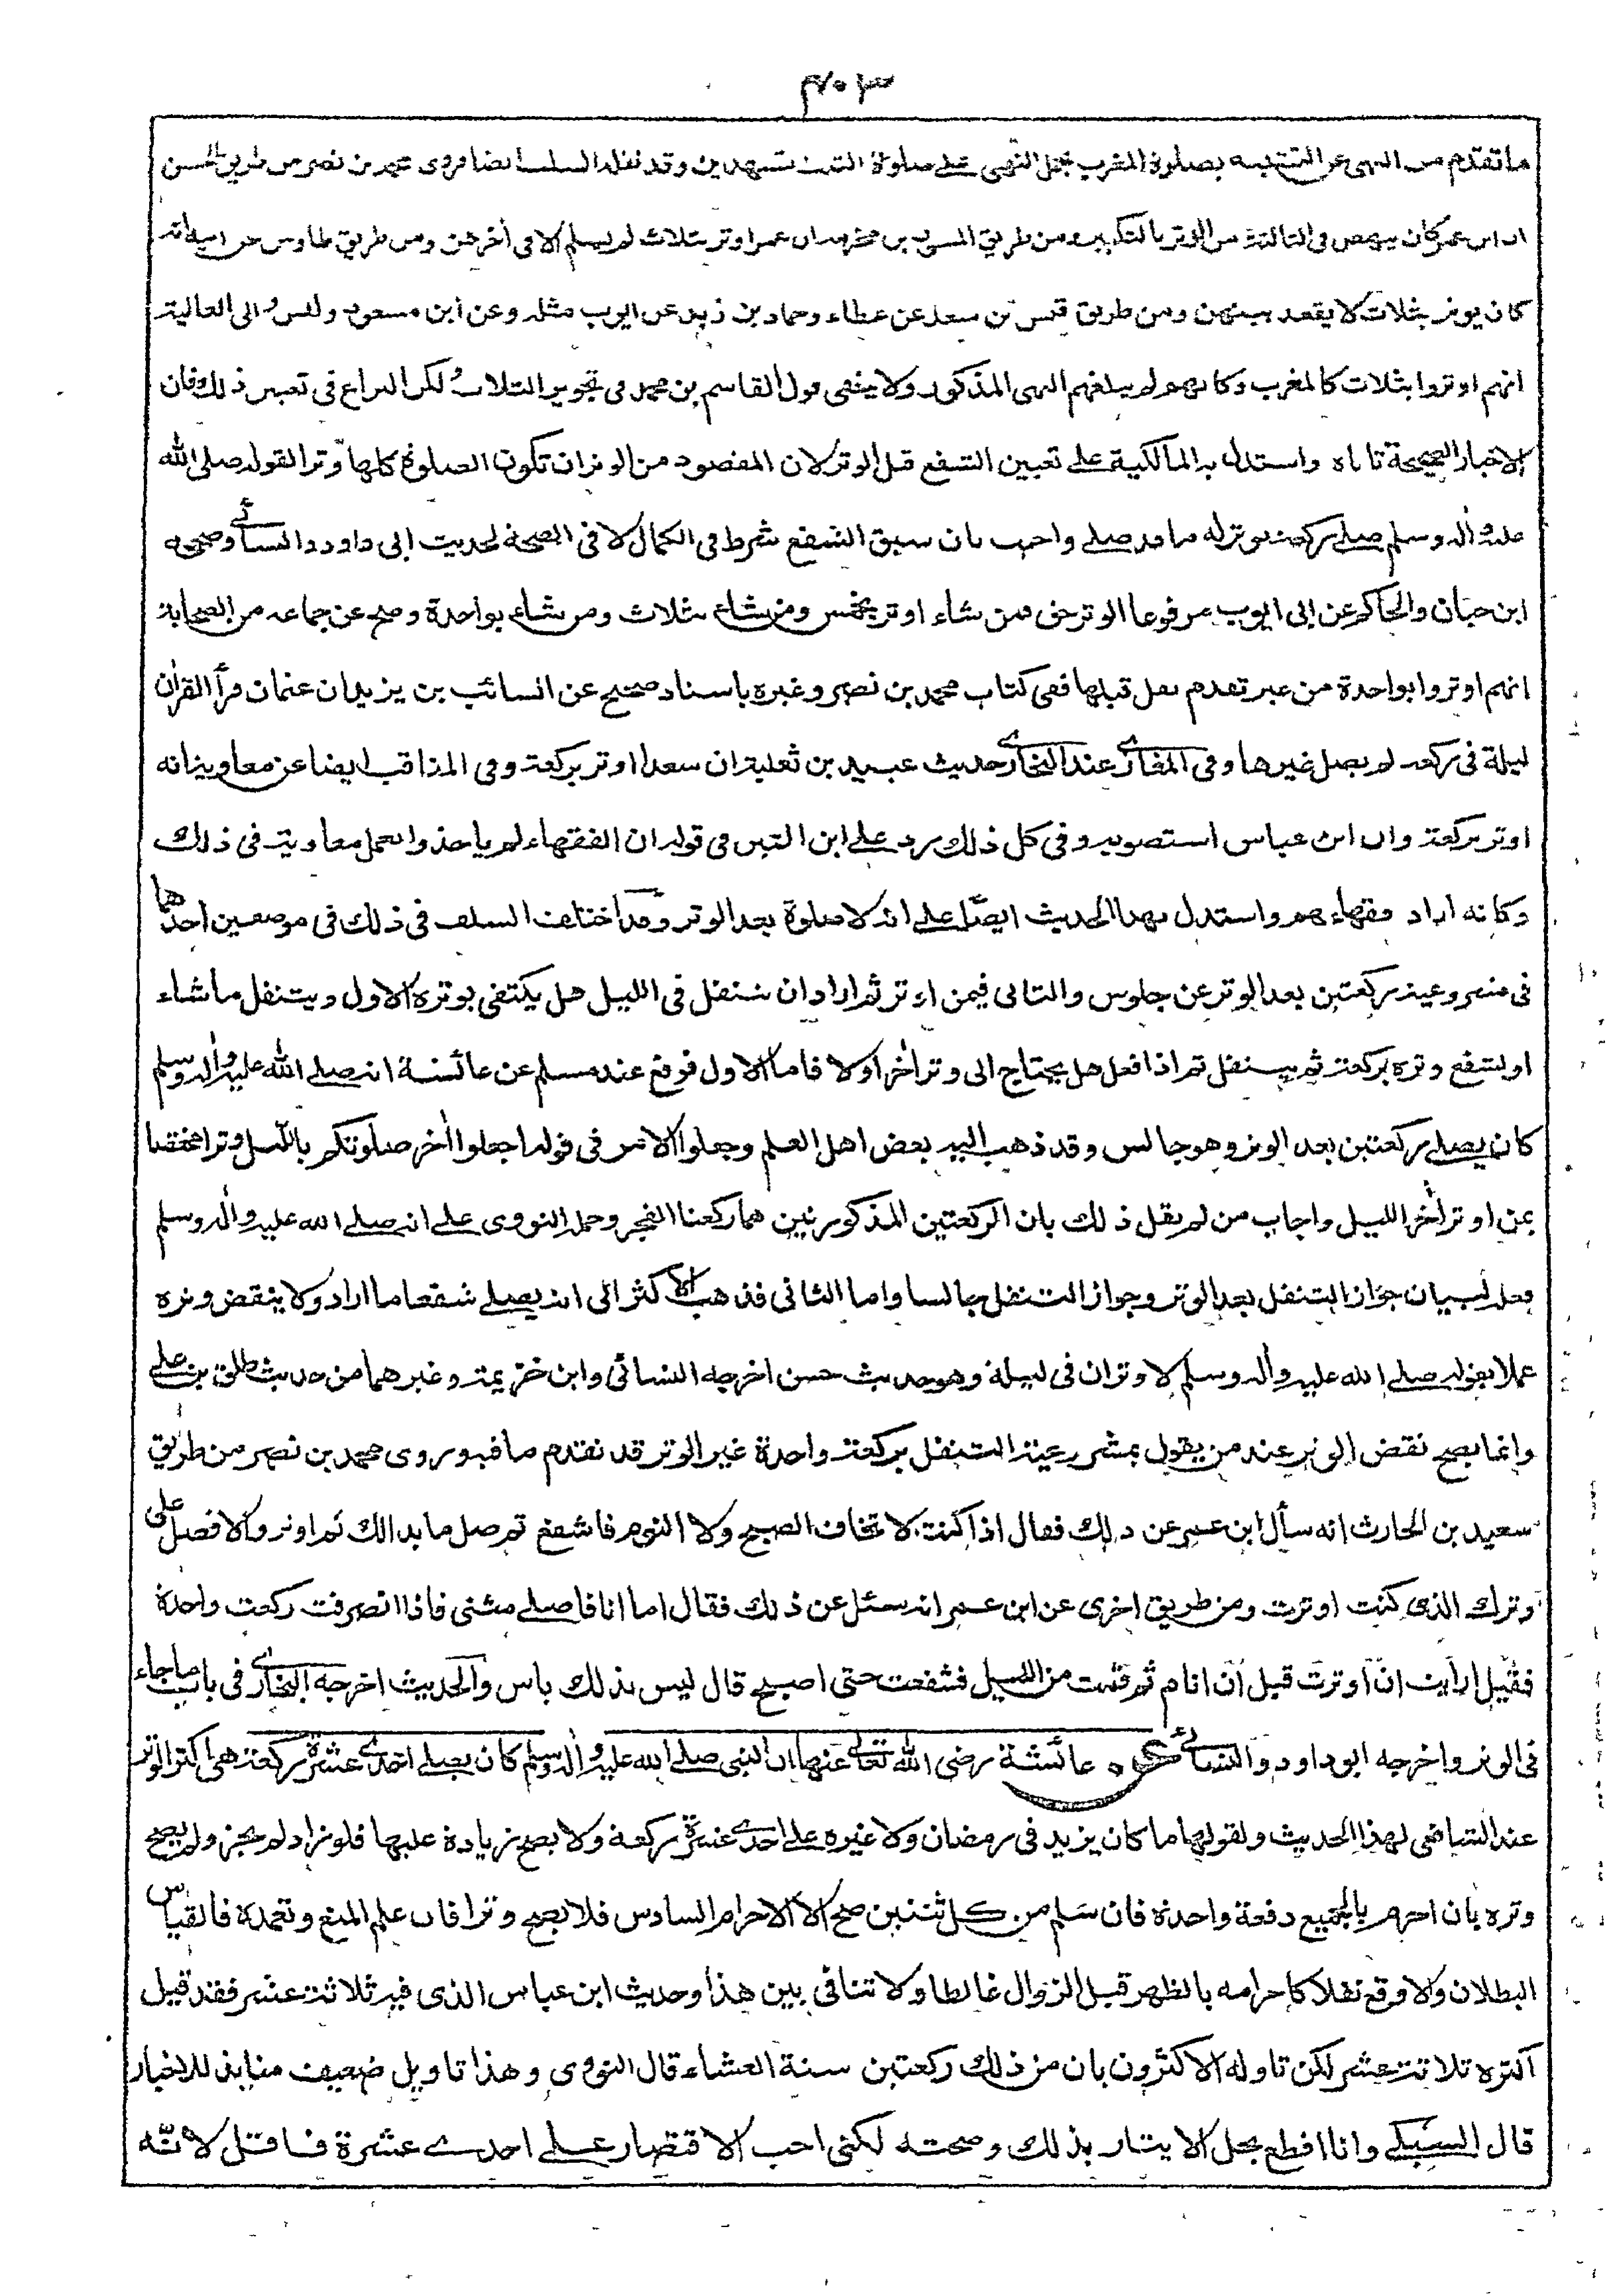 ٣٠٧
ما تقدم من النهى عن التشبيه بصلوة المغرب بحمل النهى على صلوة الثلث بتشهدين وقد نقله السلف ايضا فروى محمد بن نصر من طريق الحسن
ان ابن عمر كان ينهض فى الثالثة من الوتر بالتكبير ومن طريق المسور بن مخرمة ان عمر اوتر بثلاث لم يسلم الا فى أخرهن ومن طريق طاوس عن ابيه انه
كان يوتر بثلاث لا يقعد بينهن ومن طريق قيس بن سعد عن عطاء وحماد بن زيد عن ايوب مثله وعن ابن مسعود وانس وابى العالية
انهم اوتروا بثلاث كالمغرب وكانهم لم يبلغهم النهى المذكور ولا ينفى قول القاسم بن محمد فى تجويز الثلاث ولكن النزاع فى تعيين ذلك فان
الاخبار الصحيحة تاباه واستدل به المالكية على تعيين الشفع قبل الوتر لان المقصود من الوتر ان تكون الصلوة كلها وترا لقوله صلى الله
عليه وأله وسلم صلے ركعة توتر له ما قد صلے واجيب بان سبق الشفع شرط فى الكمال لا فى الصحة لحديث ابى داود والنسائے وصححه
ابن حبان والحاكم عن ابى ايوب مرفوعا الوتر حق فمن شاء اوتر بخمس ومن شاء بثلاث ومن شاء بواحدة وصح عن جماعة من الصحابة
انهم اوتروا بواحدة من غير تقدم نفل قبلها ففى كتاب محمد بن نصر وغيره باسناد صحيح عن السائب بن يزيد ان عثمان قرأ القرأن
ليلة فى ركعة لم يصل غيرها وفى المغازے عند البخارے حديث عبيد بن ثعلبة ان سعدا اوتر بركعة وفى المناقب ايضا عن معاوية انه
اوتر بركعة وان ابن عباس استصوبه وفى كل ذلك رد على ابن التين فى قوله ان الفقهاء لم ياخذوا بعمل معاوية فى ذلك
وكانه اراد فقهاءهم واستدل بهذا الحديث ايضا على انه لا صلوة بعد الوتر وقد اختلف السلف فى ذلك فى موضعين احدهما
فى مشروعية ركعتين بعد الوتر عن جلوس والثانى فيمن اوتر ثم اراد ان يتنفل فى الليل هل يكتفى بوتره الاول ويتنفل ما شاء
او يشفع وتره بركعة ثم يتنفل ثم اذا فعل هل يحتاج الى وتر أخر اولا فاما الاول فوقع عند مسلم عن عائشة انه صلے الله عليه وأله وسلم
كان يصلے ركعتين بعد الوتر وهو جالس وقد ذهب اليه بعض اهل العلم وجعلوا الامر فى قوله اجعلوا أخر صلوتكم بالليل وترا مختصا
بمن اوتر أخر الليل واجاب من لم يقل ذلك بان الركعتين المذكورتين هما ركعتا الفجر وحمله النووى على انه صلے الله عليه وأله وسلم
فعله لبيان جواز التنفل بعد الوتر وجواز التنفل جالسا واما الثانى فذهب الاكثر الى انه يصلے شفعا ما اراد ولا ينقض وتره
عملا بقوله صلے الله عليه وأله وسلم لا وتران فى ليلة وهو حديث حسن اخرجه النسائى وابن خزيمة وغيرهما من حديث طلق بن علے
وانما يصح نقض الوتر عند من يقول بمشروعية التنفل بركعة واحدة غير الوتر قد تقدم ما فيه وروى محمد بن نصر من طريق
سعيد بن الحارث انه سأل ابن عمر عن ذلك فقال اذا كنت لا تخاف الصبح ولا النوم فاشفع ثم صل ما بدا لك ثم اوتر والا فصل على
وترك الذى كنت اوترت ومن طريق اخرى عن ابن عمر انه سئل عن ذلك فقال اما انا فاصلے مثنى فاذا انصرفت ركعت واحدة
فقيل ارأيت ان اوترت قبل ان انام ثم قمت من الليل فشفعت حتى اصبح قال ليس بذلك باس والحديث اخرجه البخارے فى باب ما جاء
فى الوتر واخرجه ابوداود والنسائے عن عائشة رضى الله تعالے عنها ان النبى صلے الله عليه وأله وسلم كان يصلے احدے عشرة ركعة هى اكثر الوتر
عند الشافعى لهذا الحديث ولقولها ما كان يزيد فى رمضان ولا غيره على احدے عشرة ركعة ولا يصح زيادة عليها فلو زاد لم يجز ولم يصح
وتره بان احرم بالجميع دفعة واحدة فان سلم من كل ثنتين صح الا الاحرام السادس فلا يصح وترا فان علم المنع وتعمده فالقياس
البطلان والا وقع نفلا كاحرامه بالظهر قبل الزوال غالطا ولا تنافى بين هذا وحديث ابن عباس الذى فيه ثلاثة عشر فقد قيل
اكثره ثلاثة عشر لكن تاوله الاكثرون بان من ذلك ركعتين سنة العشاء قال النووى وهذا تاويل ضعيف منابذ للاخبار
قال السبكے وانا اقطع بحل الايتار بذلك وصحته لكنى احب الاقتصار علے احدے عشرة فاقل لانّه